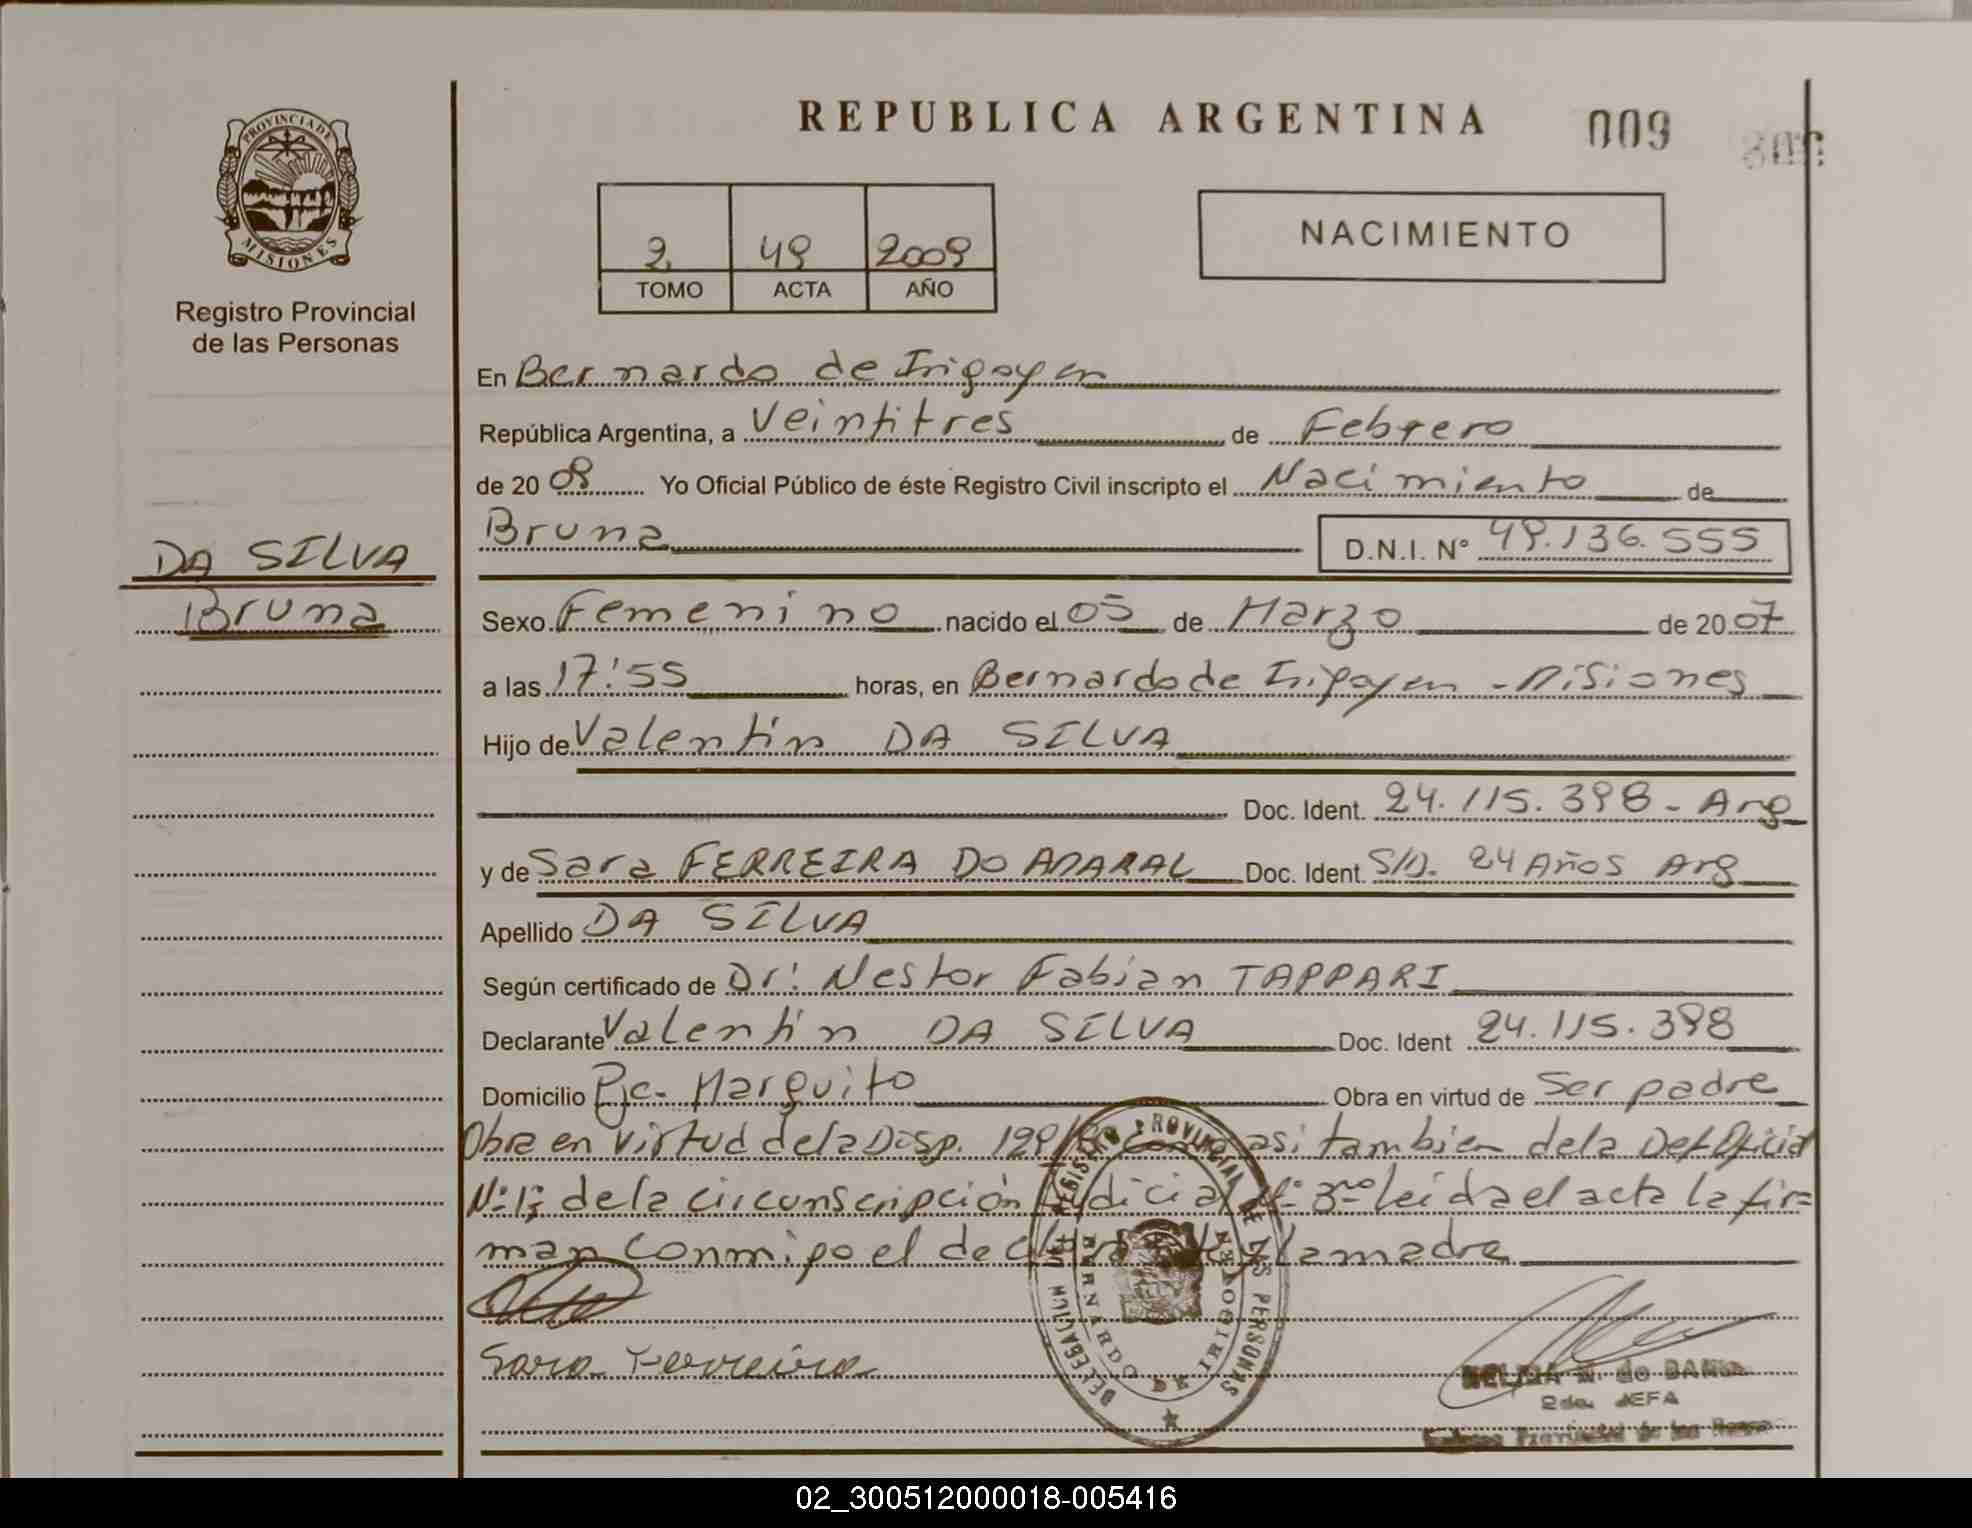 REPUBLICA ARGENTINA 009
PROVINCIA DE MISIONES
Registro Provincial
de las Personas
2 49 2009
TOMO ACTA AÑO
NACIMIENTO
En Bernardo de Irigoyen
República Argentina, a Veintitres de Febrero
de 2009 Yo Oficial Público de éste Registro Civil inscripto el Nacimiento de
Bruna D.N.I. Nº 49.136.555
DA SILVA
Bruna
Sexo Femenino nacido el 05 de Marzo de 2007
a las 17:55 horas, en Bernardo de Irigoyen - Misiones
Hijo de Valentín DA SILVA
Doc. Ident. 24.115.398 - Arg
y de Sara FERREIRA DO AMARAL Doc. Ident. S/D. 24 Años Arg
Apellido DA SILVA
Según certificado de Dr: Nestor Fabian TAPPARI
Declarante Valentín DA SILVA Doc. Ident 24.115.398
Domicilio Pje. Marquito Obra en virtud de Ser padre
Obra en virtud de la Disp. como asi tambien de la Def. Oficial
Nº 1; de la circunscripción Judicial Nº 3ra leida el acta la fir=
man conmigo el declarante y la madre
Sara Ferreira
DELEGACION DEL REGISTRO PROVINCIAL DE LAS PERSONAS
BERNARDO DE IRIGOYEN
2da. JEFA
02_300512000018-005416